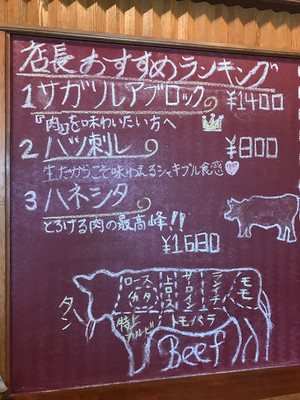 店長おすすめランキング
1 サガリレアブロック ¥1400
『肉』を味わいたい方へ
2 ハツ刺し ¥800
生だからこそ味わえるシャキプル食感
3 ハネシタ
とろける肉の最高峰!!
¥1680
タン
ロース
カタ
トロース
サーロイン
ランイチ
モモ
特上カルビ
トモバラ
Beef